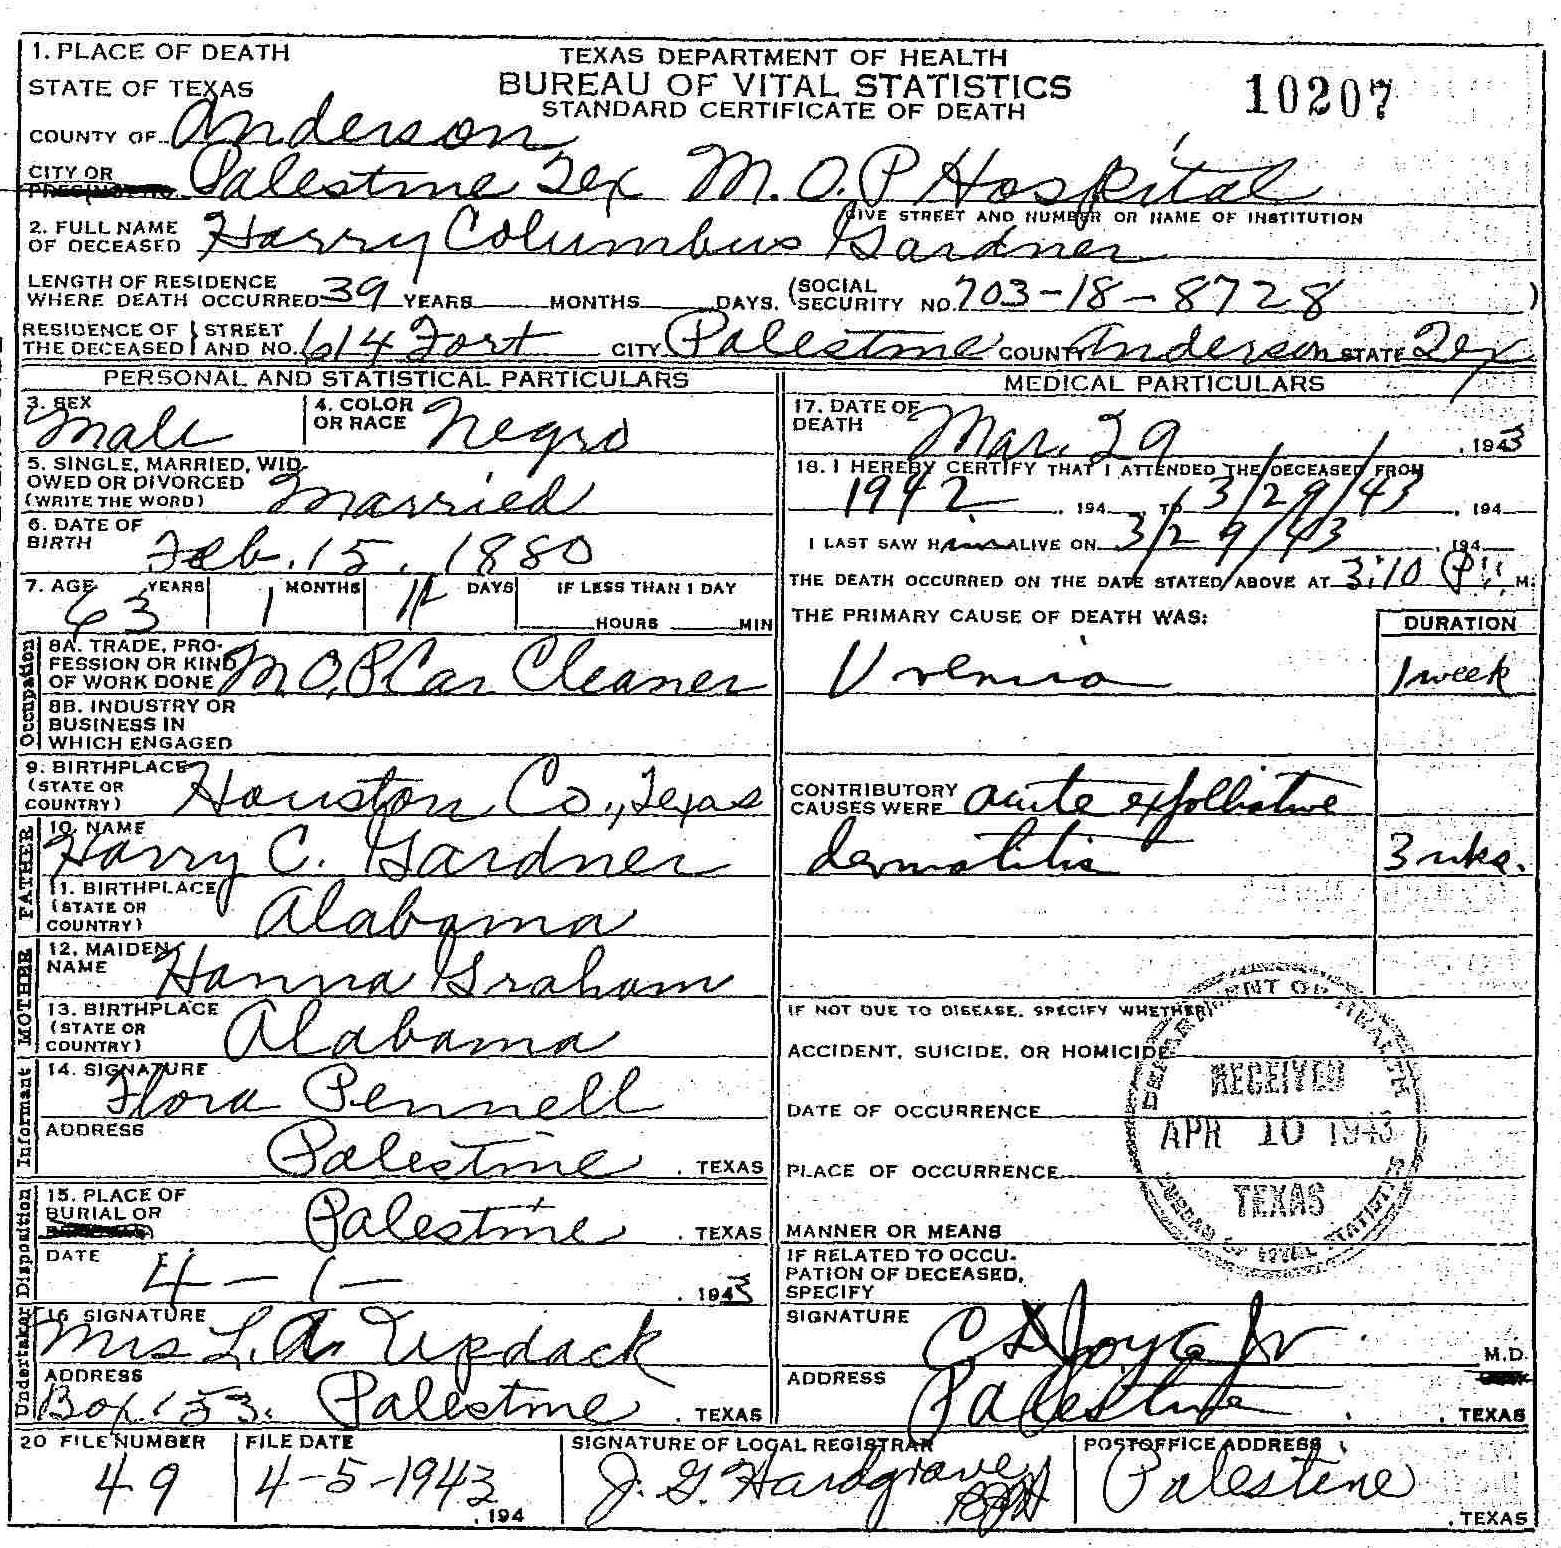 1. PLACE OF DEATH
TEXAS DEPARTMENT OF HEALTH
STATE OF TEXAS
BUREAU OF VITAL STATISTICS
10207
STANDARD CERTIFICATE OF DEATH
COUNTY OF Anderson
CITY OR Palestine Tex M.O.P Hospital
GIVE STREET AND NUMBER OR NAME OF INSTITUTION
2. FULL NAME OF DECEASED Harry Columbus Gardner
LENGTH OF RESIDENCE WHERE DEATH OCCURRED 39 YEARS MONTHS DAYS. (SOCIAL SECURITY NO. 703-18-8728 )
RESIDENCE OF THE DECEASED STREET AND NO. 614 Fort CITY Palestine COUNTY Anderson STATE Tex
PERSONAL AND STATISTICAL PARTICULARS
3. SEX Male 4. COLOR OR RACE Negro
5. SINGLE, MARRIED, WIDOWED OR DIVORCED (WRITE THE WORD) Married
6. DATE OF BIRTH Feb. 15, 1880
7. AGE 63 YEARS 1 MONTHS DAYS IF LESS THAN 1 DAY
HOURS MIN
Occupation
8A. TRADE, PROFESSION OR KIND OF WORK DONE M.O.P Car Cleaner
8B. INDUSTRY OR BUSINESS IN WHICH ENGAGED
9. BIRTHPLACE (STATE OR COUNTRY) Houston Co., Texas
FATHER
10. NAME Harry C. Gardner
11. BIRTHPLACE (STATE OR COUNTRY) Alabama
MOTHER
12. MAIDEN NAME Hanna Graham
13. BIRTHPLACE (STATE OR COUNTRY) Alabama
Informant
14. SIGNATURE Flora Pennell
ADDRESS Palestine, TEXAS
Disposition
15. PLACE OF BURIAL OR Palestine, TEXAS
DATE 4-1-, 1943
Undertaker
16 SIGNATURE Mrs L. A. Updack
ADDRESS Box 153. Palestine, TEXAS
MEDICAL PARTICULARS
17. DATE OF DEATH Mar. 29, 1943
18. I HEREBY CERTIFY THAT I ATTENDED THE DECEASED FROM
1942, 194 TO 3/29/43, 194
I LAST SAW H im ALIVE ON 3/29/43, 194
THE DEATH OCCURRED ON THE DATE STATED ABOVE AT 3:10 P M.
THE PRIMARY CAUSE OF DEATH WAS: DURATION
Uremia 1 week
CONTRIBUTORY CAUSES WERE acute exfolliative
dermatitis 3 wks.
IF NOT DUE TO DISEASE, SPECIFY WHETHER
ACCIDENT, SUICIDE, OR HOMICIDE
DATE OF OCCURRENCE
PLACE OF OCCURRENCE
MANNER OR MEANS
IF RELATED TO OCCUPATION OF DECEASED, SPECIFY
DEPARTMENT OF HEALTH
RECEIVED
APR 10 1943
TEXAS
BUREAU OF VITAL STATISTICS
SIGNATURE M.D.
ADDRESS Palestine, TEXAS
20 FILE NUMBER 49
FILE DATE 4-5-1943, 194
SIGNATURE OF LOCAL REGISTRAR J. G. Hardgrave
POSTOFFICE ADDRESS Palestine, TEXAS